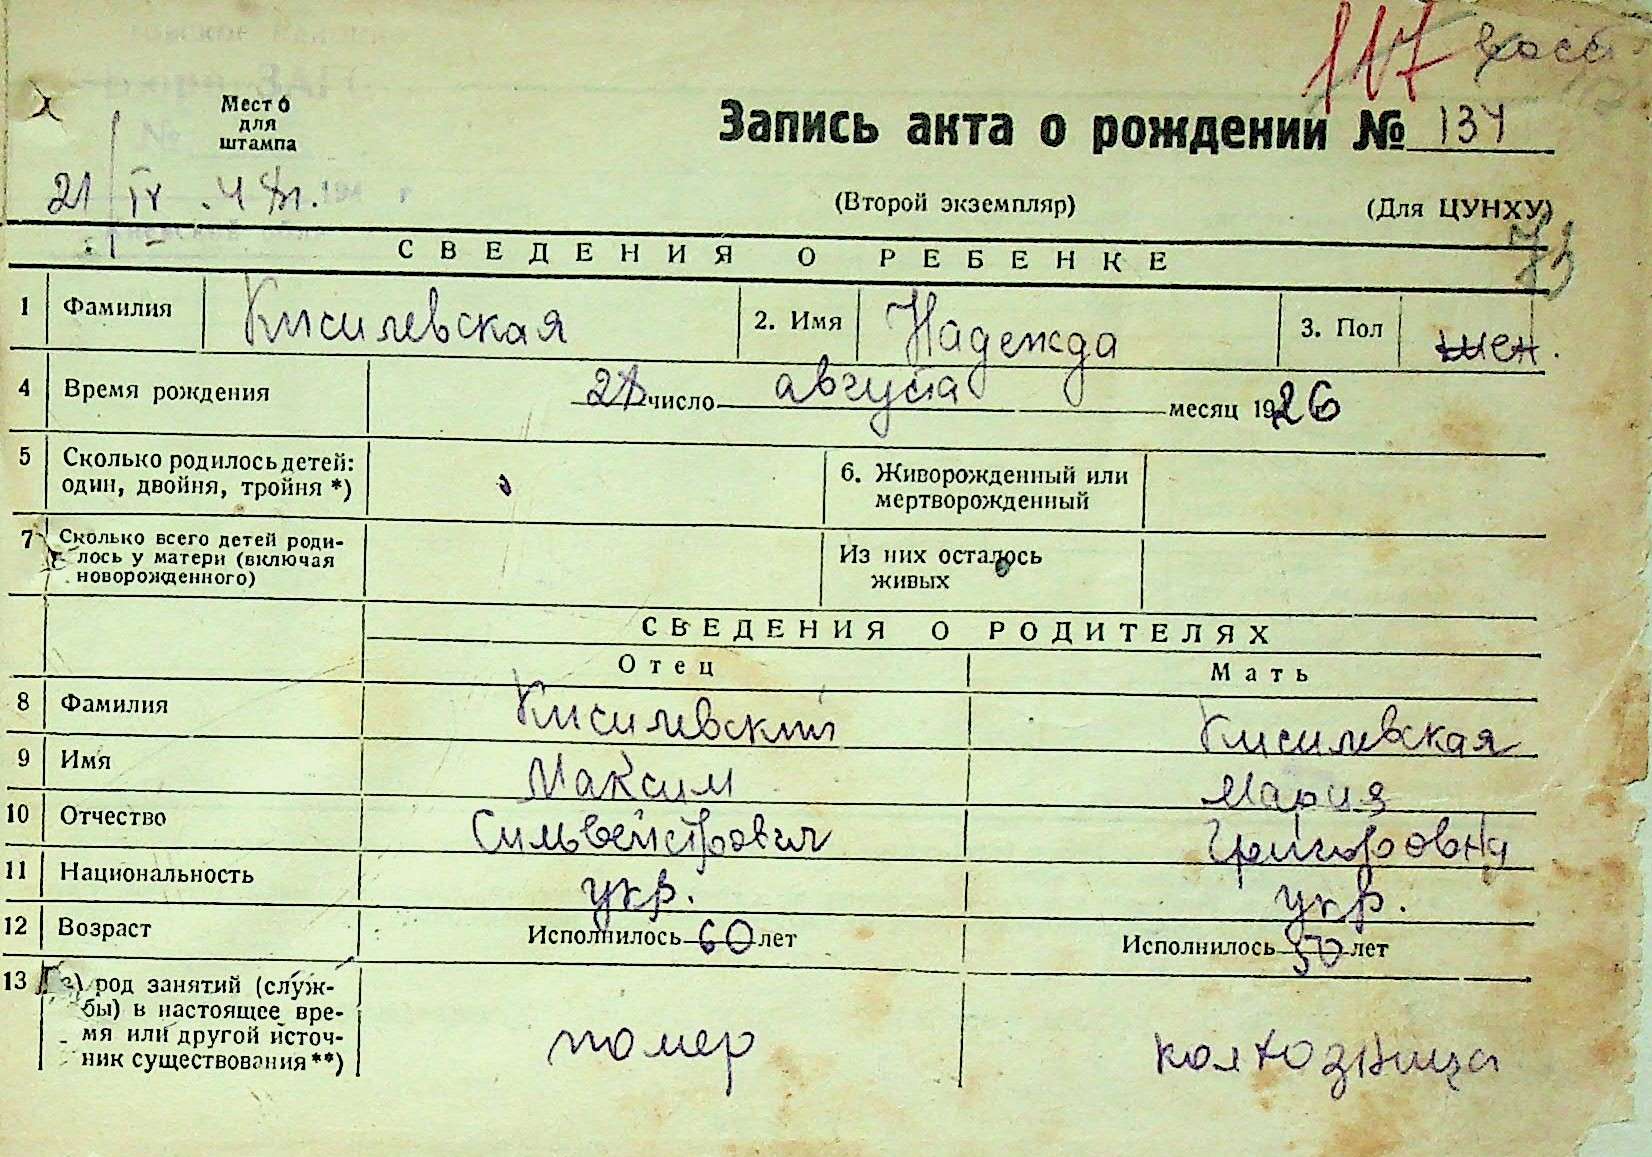 117
Место
для
штампа
Запись акта о рождении № 134
21 IV. 4
(Второй экземпляр) (Для ЦУНХУ)
73
СВЕДЕНИЯ О РЕБЕНКЕ
1 Фамилия Кисилевская 2. Имя Надежда 3. Пол жен.
4 Время рождения число августа месяц 1926
5 Сколько родилось детей: один, двойня, тройня *) 6. Живорожденный или мертворожденный
7 Сколько всего детей родилось у матери (включая новорожденного) Из них осталось живых
СВЕДЕНИЯ О РОДИТЕЛЯХ
Отец Мать
8 Фамилия Кисилевский Кисилевская
9 Имя Максим Мария
10 Отчество Сильвейстрович Григоровна
11 Национальность укр. укр.
12 Возраст Исполнилось 60 лет Исполнилось 50 лет
13 а) род занятий (служ-
бы) в настоящее вре-
мя или другой источ-
ник существования**) помер колхозница